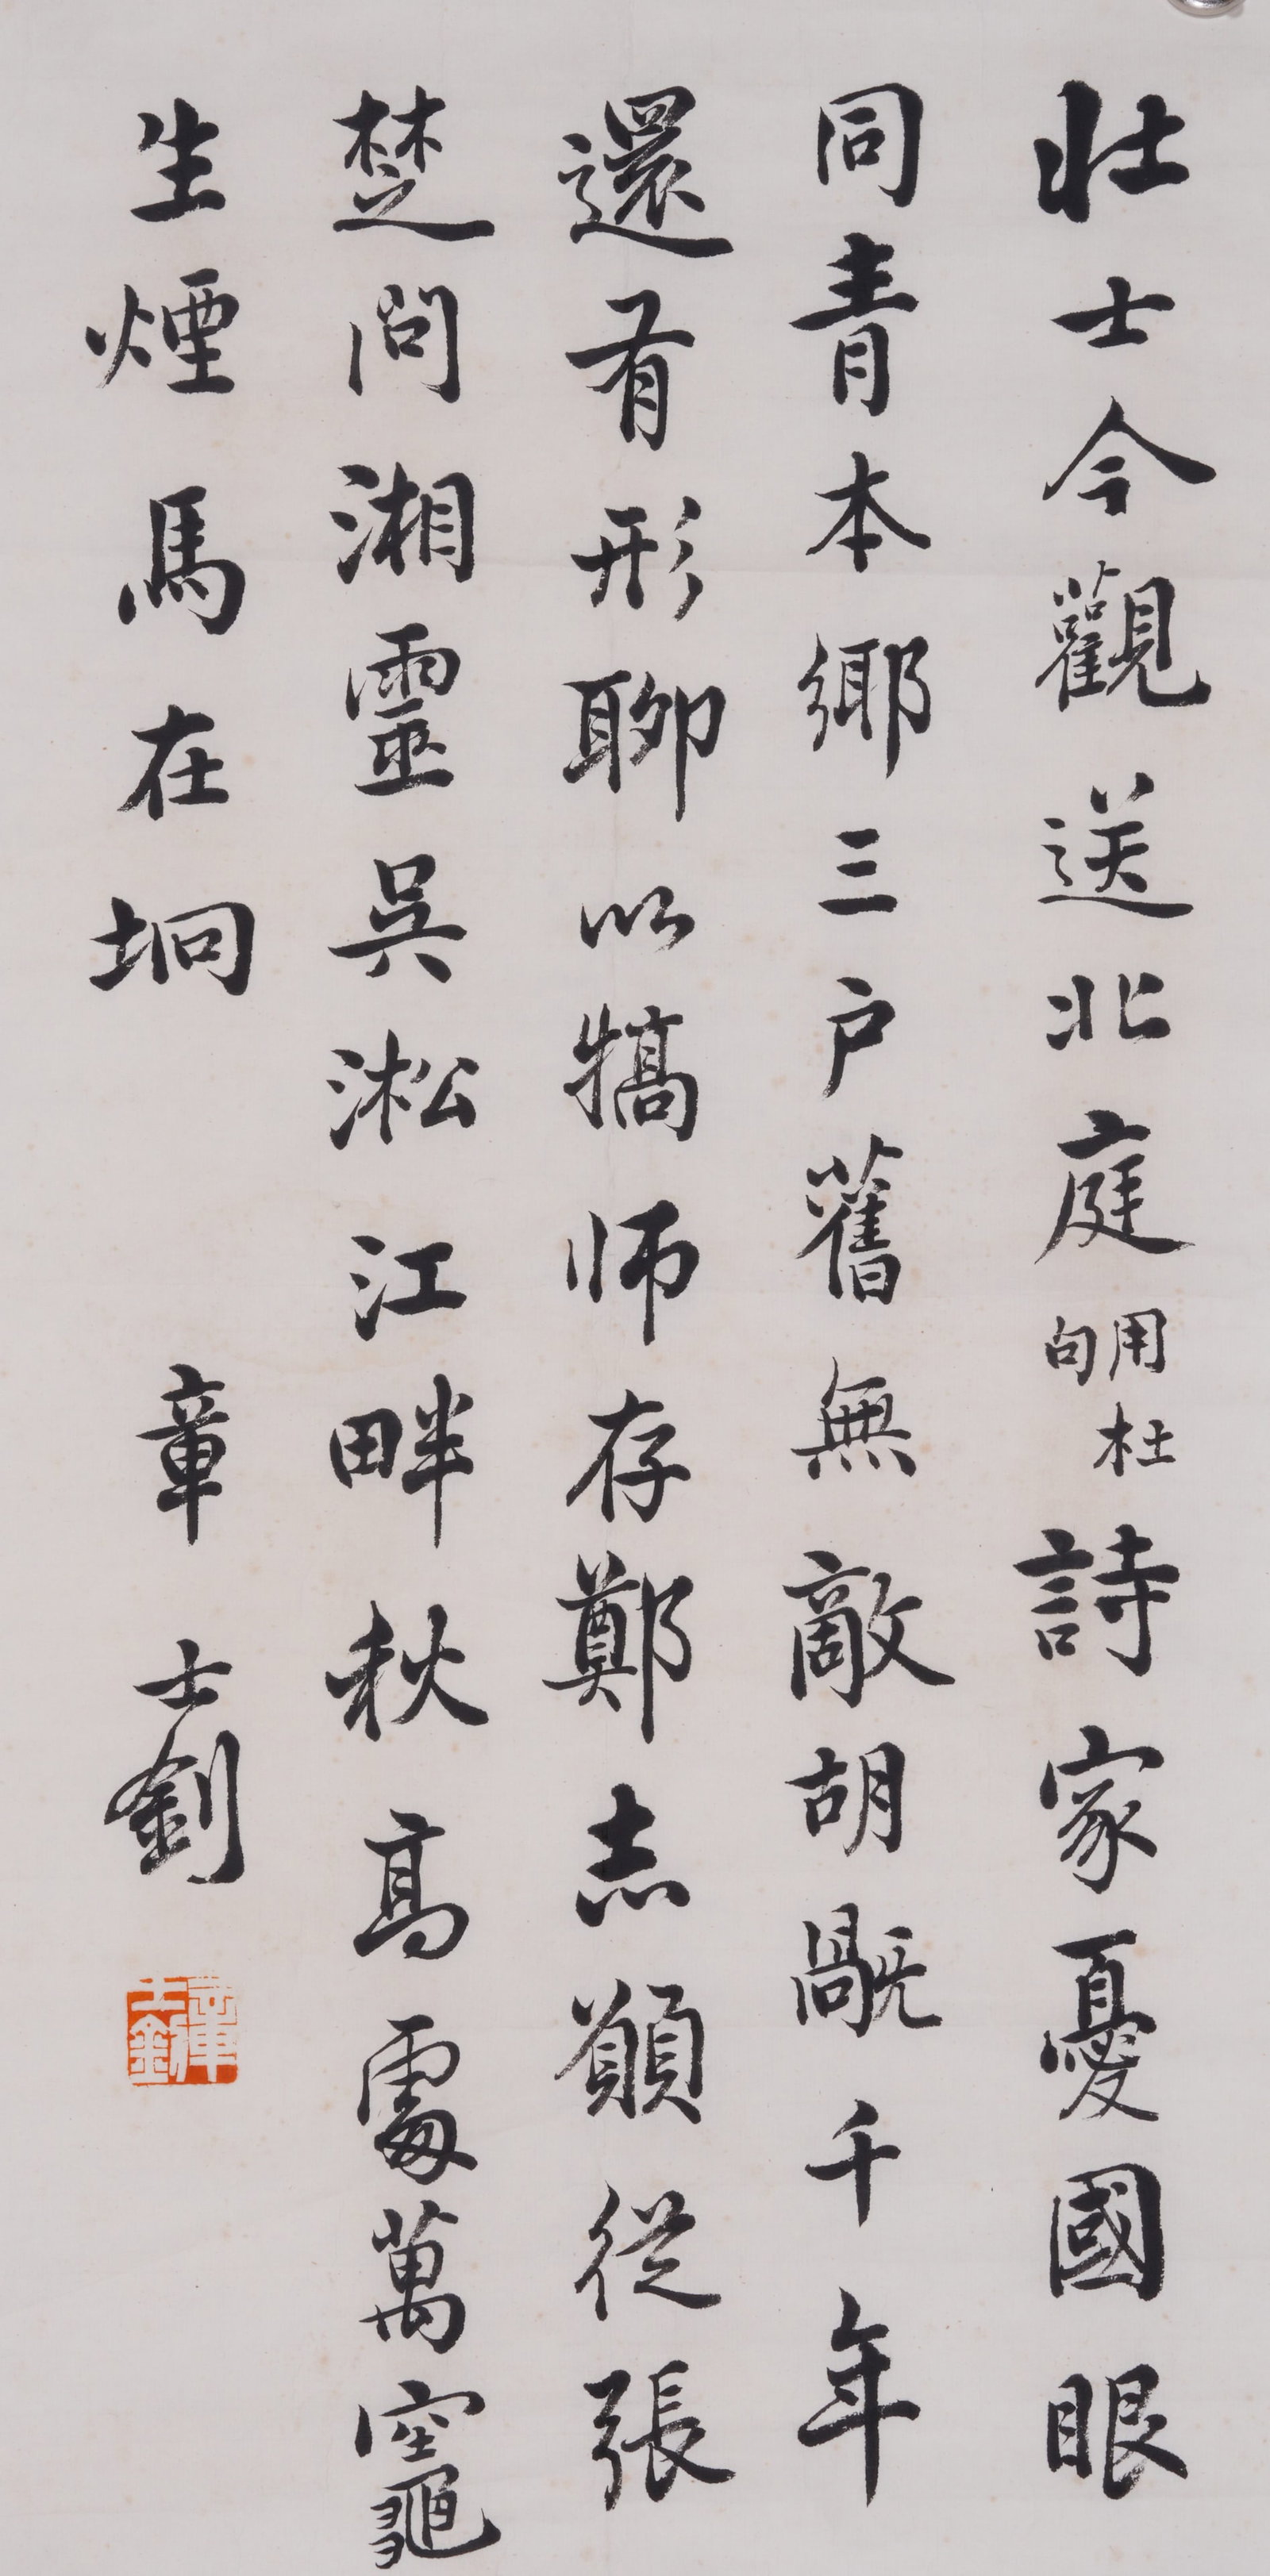 壯士今觀送北庭用杜句詩家憂國眼
同青本鄉三户舊無敵胡羯千年
還有形聊以犒师存鄭志願從張
楚問湘靈吳淞江畔秋高處萬竈
生煙馬在坰
章士釗
章士釗